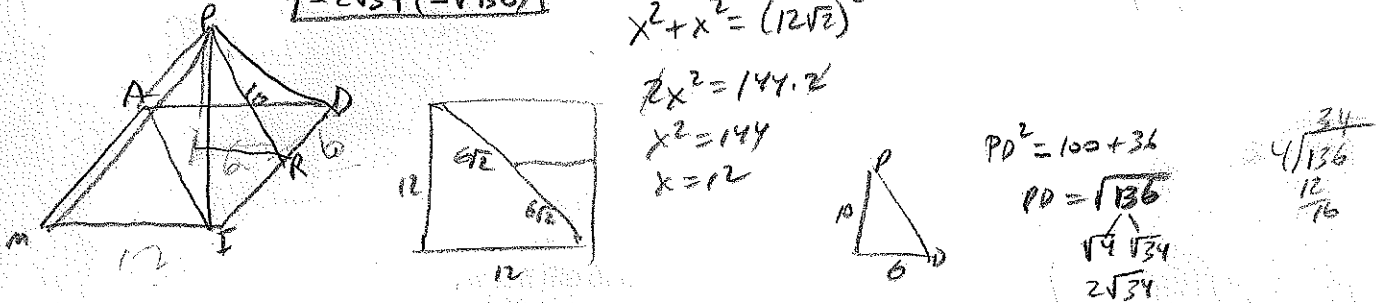 = 2√34 (= √136)
x² + x² = (12√2)²
2x² = 144·2
x² = 144
x = 12
P
A
D
10
6
6
R
M
I
12
12
6√2
6√2
12
P
10
6
D
PD² = 100 + 36
PD = √136
√4 √34
2√34
34
4)136
12
16